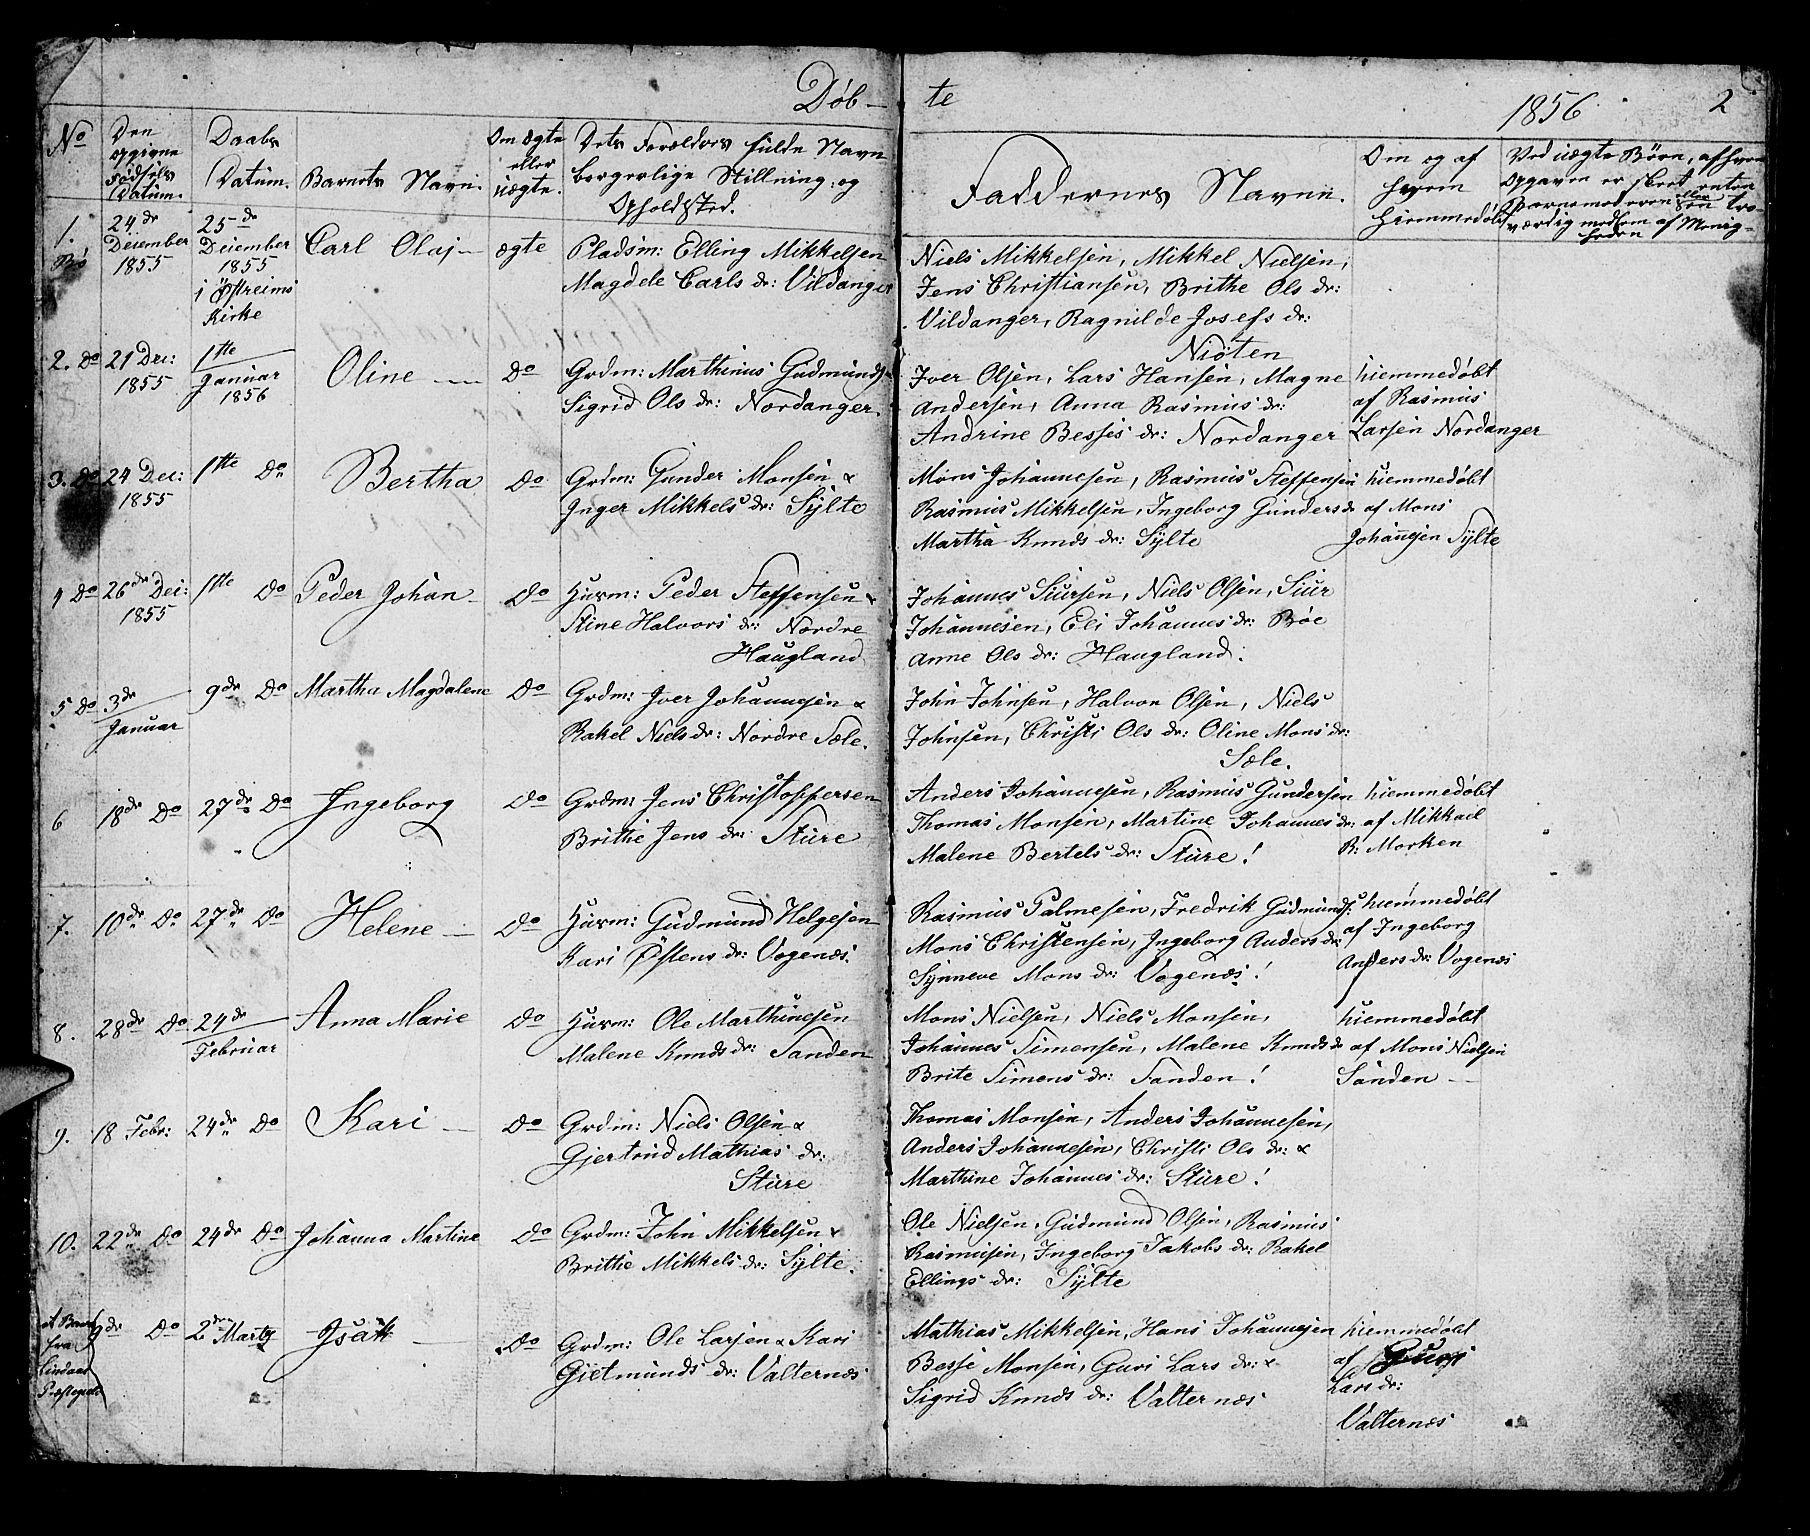 Døb- te 1856 2
No
Den opgivne Fødsels Datum.
Daabs Datum.
Barnets Navn.
Om ægte eller uægte.
Dets Forældres fulde Navn borgerlige Stillning: og Opholdsted.
Faddernes Navne.
Om og af hvem hiemmedøbt
Ved uægte Børn, af hvem Opgaven er skeet, enten Barnemoderen eller en tro-
værdig medlem af Menig-
heden
1. Bø
24de December 1855
25de December 1855 i Østreims Kirke
Carl Olaj-
ægte
Pladsm: Elling Mikkelsen
Magdele Carls dr: Vildanger
Niels Mikkelsen, Mikkel Nielsen,
Jens Christiansen, Brithe Ols dr:
Vildanger, Ragnilde Josefs dr:
Niøten
2. Do
21 Dec: 1855
1ste Januar 1856
Oline
Do
Grdm: Marthinus Gudmunds
Sigrid Ols dr: Nordanger.
Iver Olsen, Lars Hansen, Magne
Andersen, Anna Rasmus dr:
Andrine Besses dr: Nordanger
hiemmedøbt
af Rasmus
Larsen Nordanger
3. Do
24 Dec: 1855
1ste Do
Bertha
Do
Grdm: Gunder Monsen &
Inger Mikkels dr: Sylte
Mons Johannesen, Rasmus Steffensen
Rasmus Mikkelsen, Ingeborg Gunders dr
Martha Knuds dr: Sylte
hiemmedøbt
af Mons
Johannesen Sylte
4 Do
26de Dec: 1855
1ste Do
Peder Johan-
Do
Huvm: Peder Steffensen &
Stine Halvors dr: Nordre
Haugland
Johannes Siursen, Niels Olsen, Siur
Johannesen, Eli Johannes dr: Bøe
Anne Ols dr: Haugland.
5 Do
3de Januar
9de Do
Martha Magdalene
Do
Grdm: Iver Johannesen &
Rakel Niels dr: Nordre Sæle.
John Johnsen, Halvor Olsen, Niels
Johnsen, Christi Ols dr: Oline Mons dr:
Sæle.
6
18de Do
27de Do
Ingeborg
Do
Grdm: Jens Christoffersen
Brithe Jens dr: Sture
Anders Johannesen, Rasmus Gundersen
Thomas Monsen, Martine Johannes dr:
Malene Bertels dr: Sture!
hiemmedøbt
af Mikkael
R: Morken
7.
10de Do
27de Do
Helene
Do
Huvm: Gudmund Helgesen
Kari Østens dr: Vogenes.
Rasmus Palmesen, Fredrik Gudmunds:
Mons Christensen, Ingeborg Anders dr:
Synneve Mons dr: Vogenes!
hiemmedøbt
af Ingeborg
Anders dr: Vogenes
8.
28de Do
24de Februar
Anna Marie
Do
Huvm: Ole Marthinesen
Malene Knuds dr: Sanden
Mons Nielsen, Niels Monsen,
Johannes Simensen, Malene Knuds dr
Brite Simens dr: Sanden!
hiemmedøbt
af Mons Nielsen
Sanden
9.
18 Febr:
24de Do
Kari
Do
Grdm: Niels Olsen &
Gjertrud Mathias dr:
Sture
Thomas Monsen, Anders Johannesen,
Anders Johannesen, Christi Ols dr: &
Marthine Johannes dr: Sture!
10.
22de Do
24de Do
Johanna Martine
Do
Grdm: John Mikkelsen &
Brithe Mikkels dr: Sylte.
Ole Nielsen, Gudmund Olsen, Rasmus
Rasmusen, Ingeborg Jakobs dr: Rakel
Ellings dr: Sylte
et Barn fra Lindaas Præstegield
Do
2den Marty
Isak
Do
Grdm: Ole Larsen & Kari
Gietmunds dr: Valternæs
Mathias Mikkelsen, Hans Johannesen
Besse Monsen, Guri Lars dr: &
Sigrid Knuds dr: Valternæs
hiemmedøbt
af Guri
Lars dr:
Valternæs